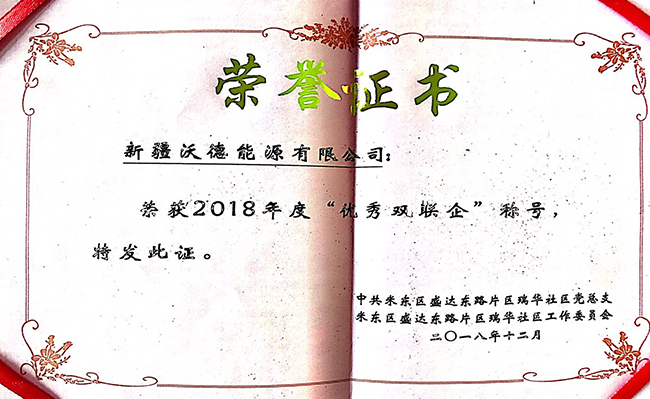 荣誉证书
新疆沃德能源有限公司:
荣获2018年度“优秀双联企”称号,
特发此证。
中共米东区盛达东路片区瑞华社区党总支
米东区盛达东路片区瑞华社区工作委员会
二〇一八年十二月